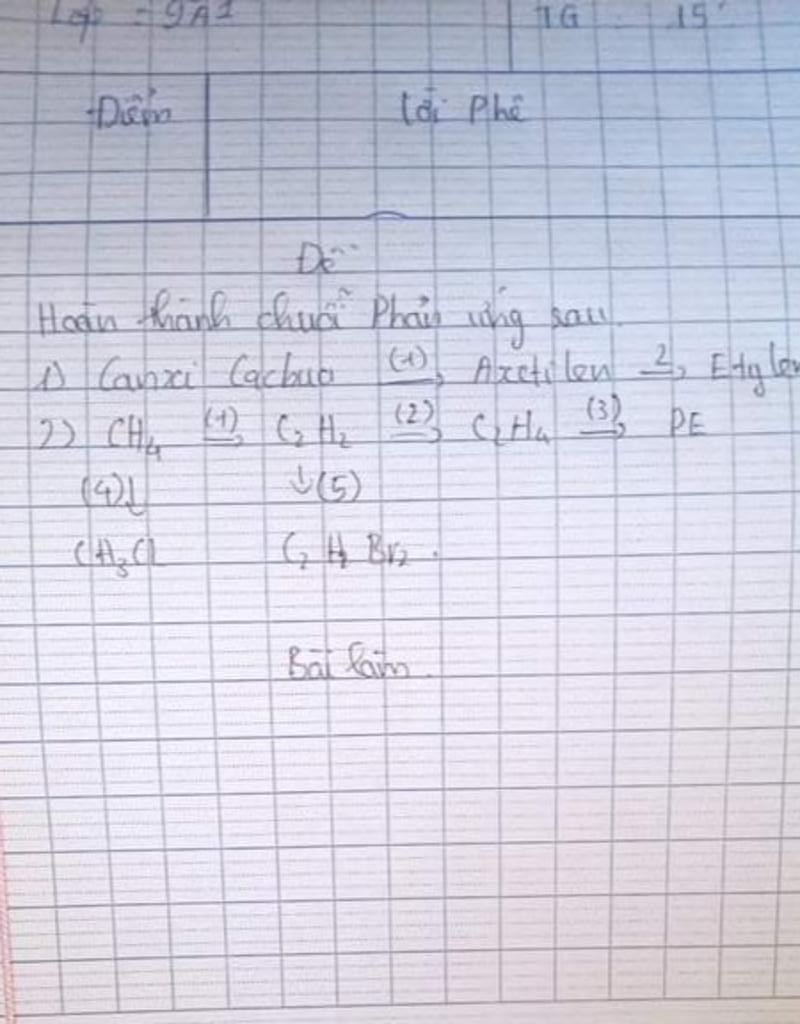 Lớp : 9A1 TG : 15'
Điểm Lời Phê
Đề
Hoàn thành chuỗi Phản ứng sau.
1) Canxi Cacbua (1)→ Axetilen 2→ Etylen
2) CH₄ (1)→ C₂H₂ (2)→ C₂H₄ (3)→ PE
(4)↓ ↓(5)
CH₃Cl C₂H₂Br₂.
Bài làm.